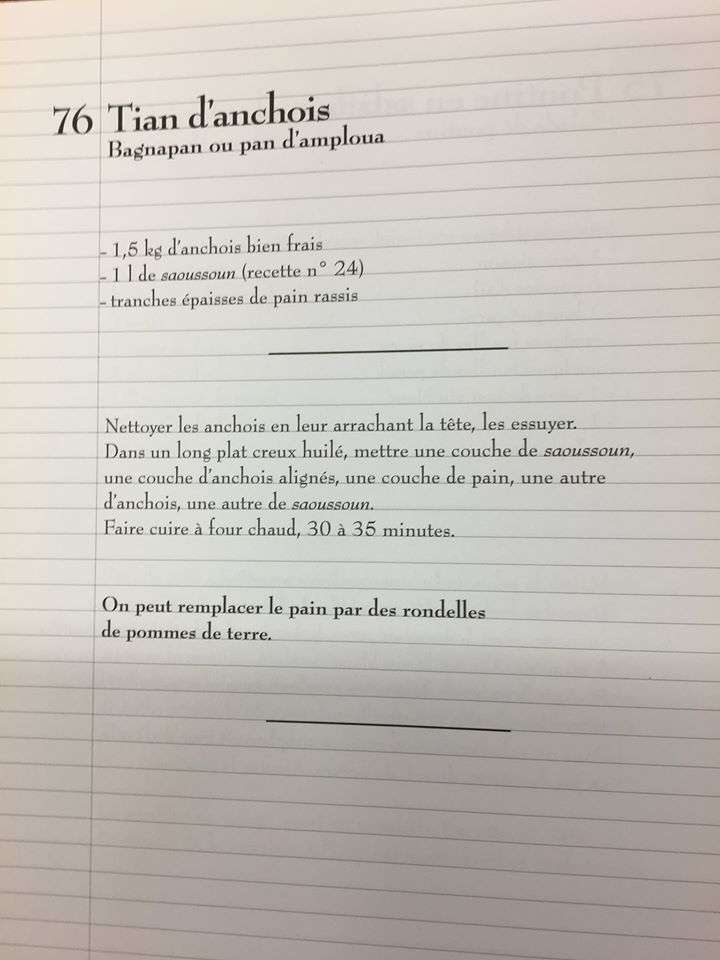 76 Tian d'anchois
Bagnapan ou pan d'amploua
- 1,5 kg d'anchois bien frais
- 1 l de saoussoun (recette n° 24)
- tranches épaisses de pain rassis
Nettoyer les anchois en leur arrachant la tête, les essuyer.
Dans un long plat creux huilé, mettre une couche de saoussoun,
une couche d'anchois alignés, une couche de pain, une autre
d'anchois, une autre de saoussoun.
Faire cuire à four chaud, 30 à 35 minutes.
On peut remplacer le pain par des rondelles
de pommes de terre.